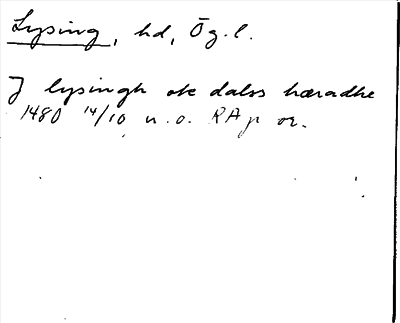 Lysing, hd, Ög.l.
J lysingh ok dalss hæradhe
1480 14/10 n.o. RAp or.